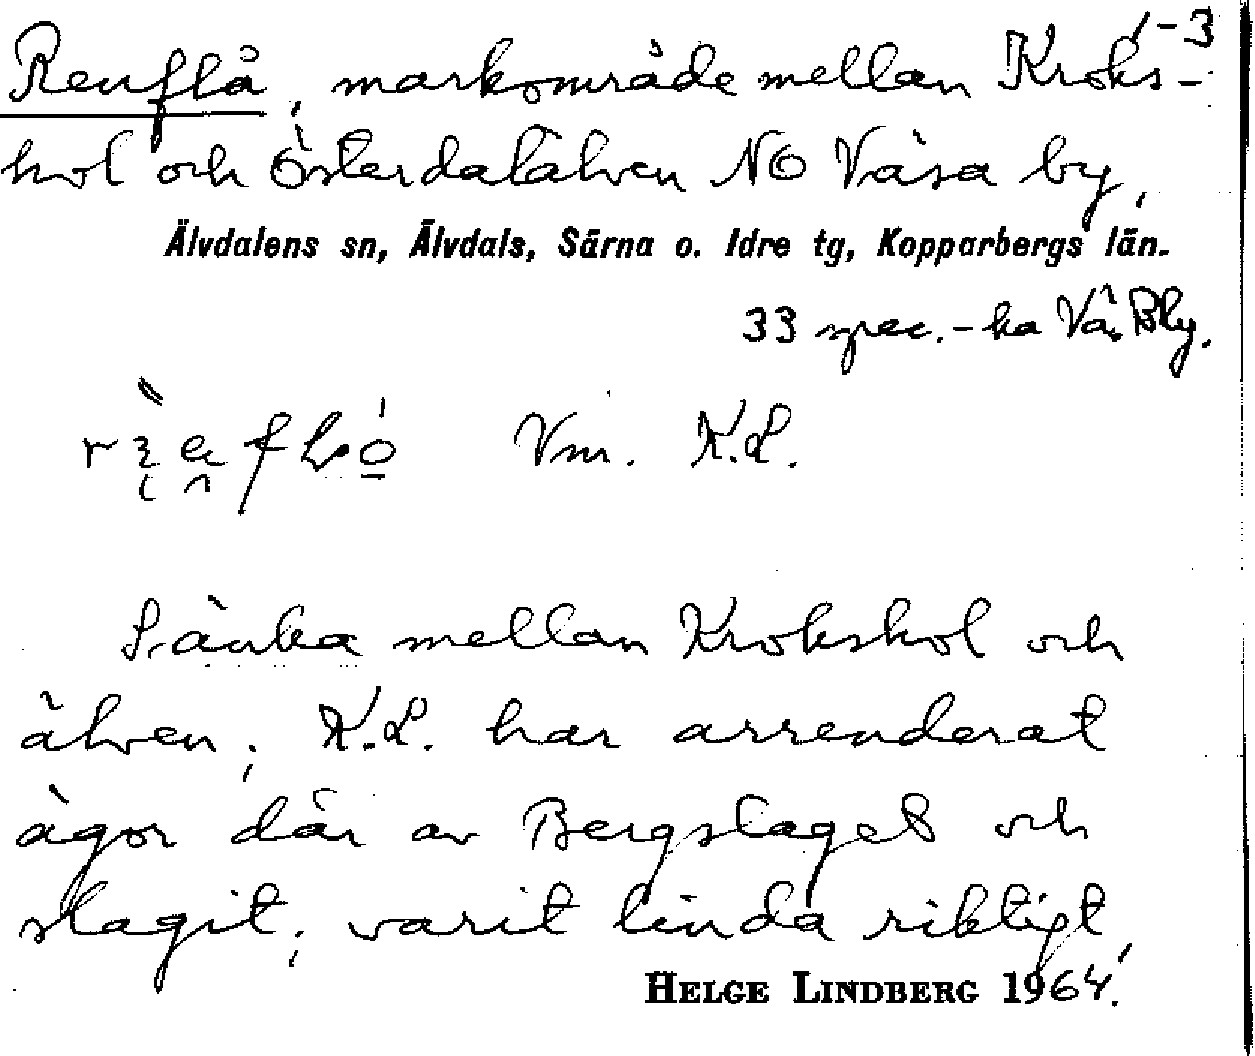 1-3
Renflå, markområde mellan Kroks-
hol och Österdalälven NO Våsa by,
Älvdalens sn, Älvdals, Särna o. Idre tg, Kopparbergs län.
33 spec.-ka Vå. Bly.
Vm. K.L.
Sänka mellan Krokshol och
älven; K.L. har arrenderat
ägor där av Bergslaget och
slagit; varit linda riktigt,
HELGE LINDBERG 1964.